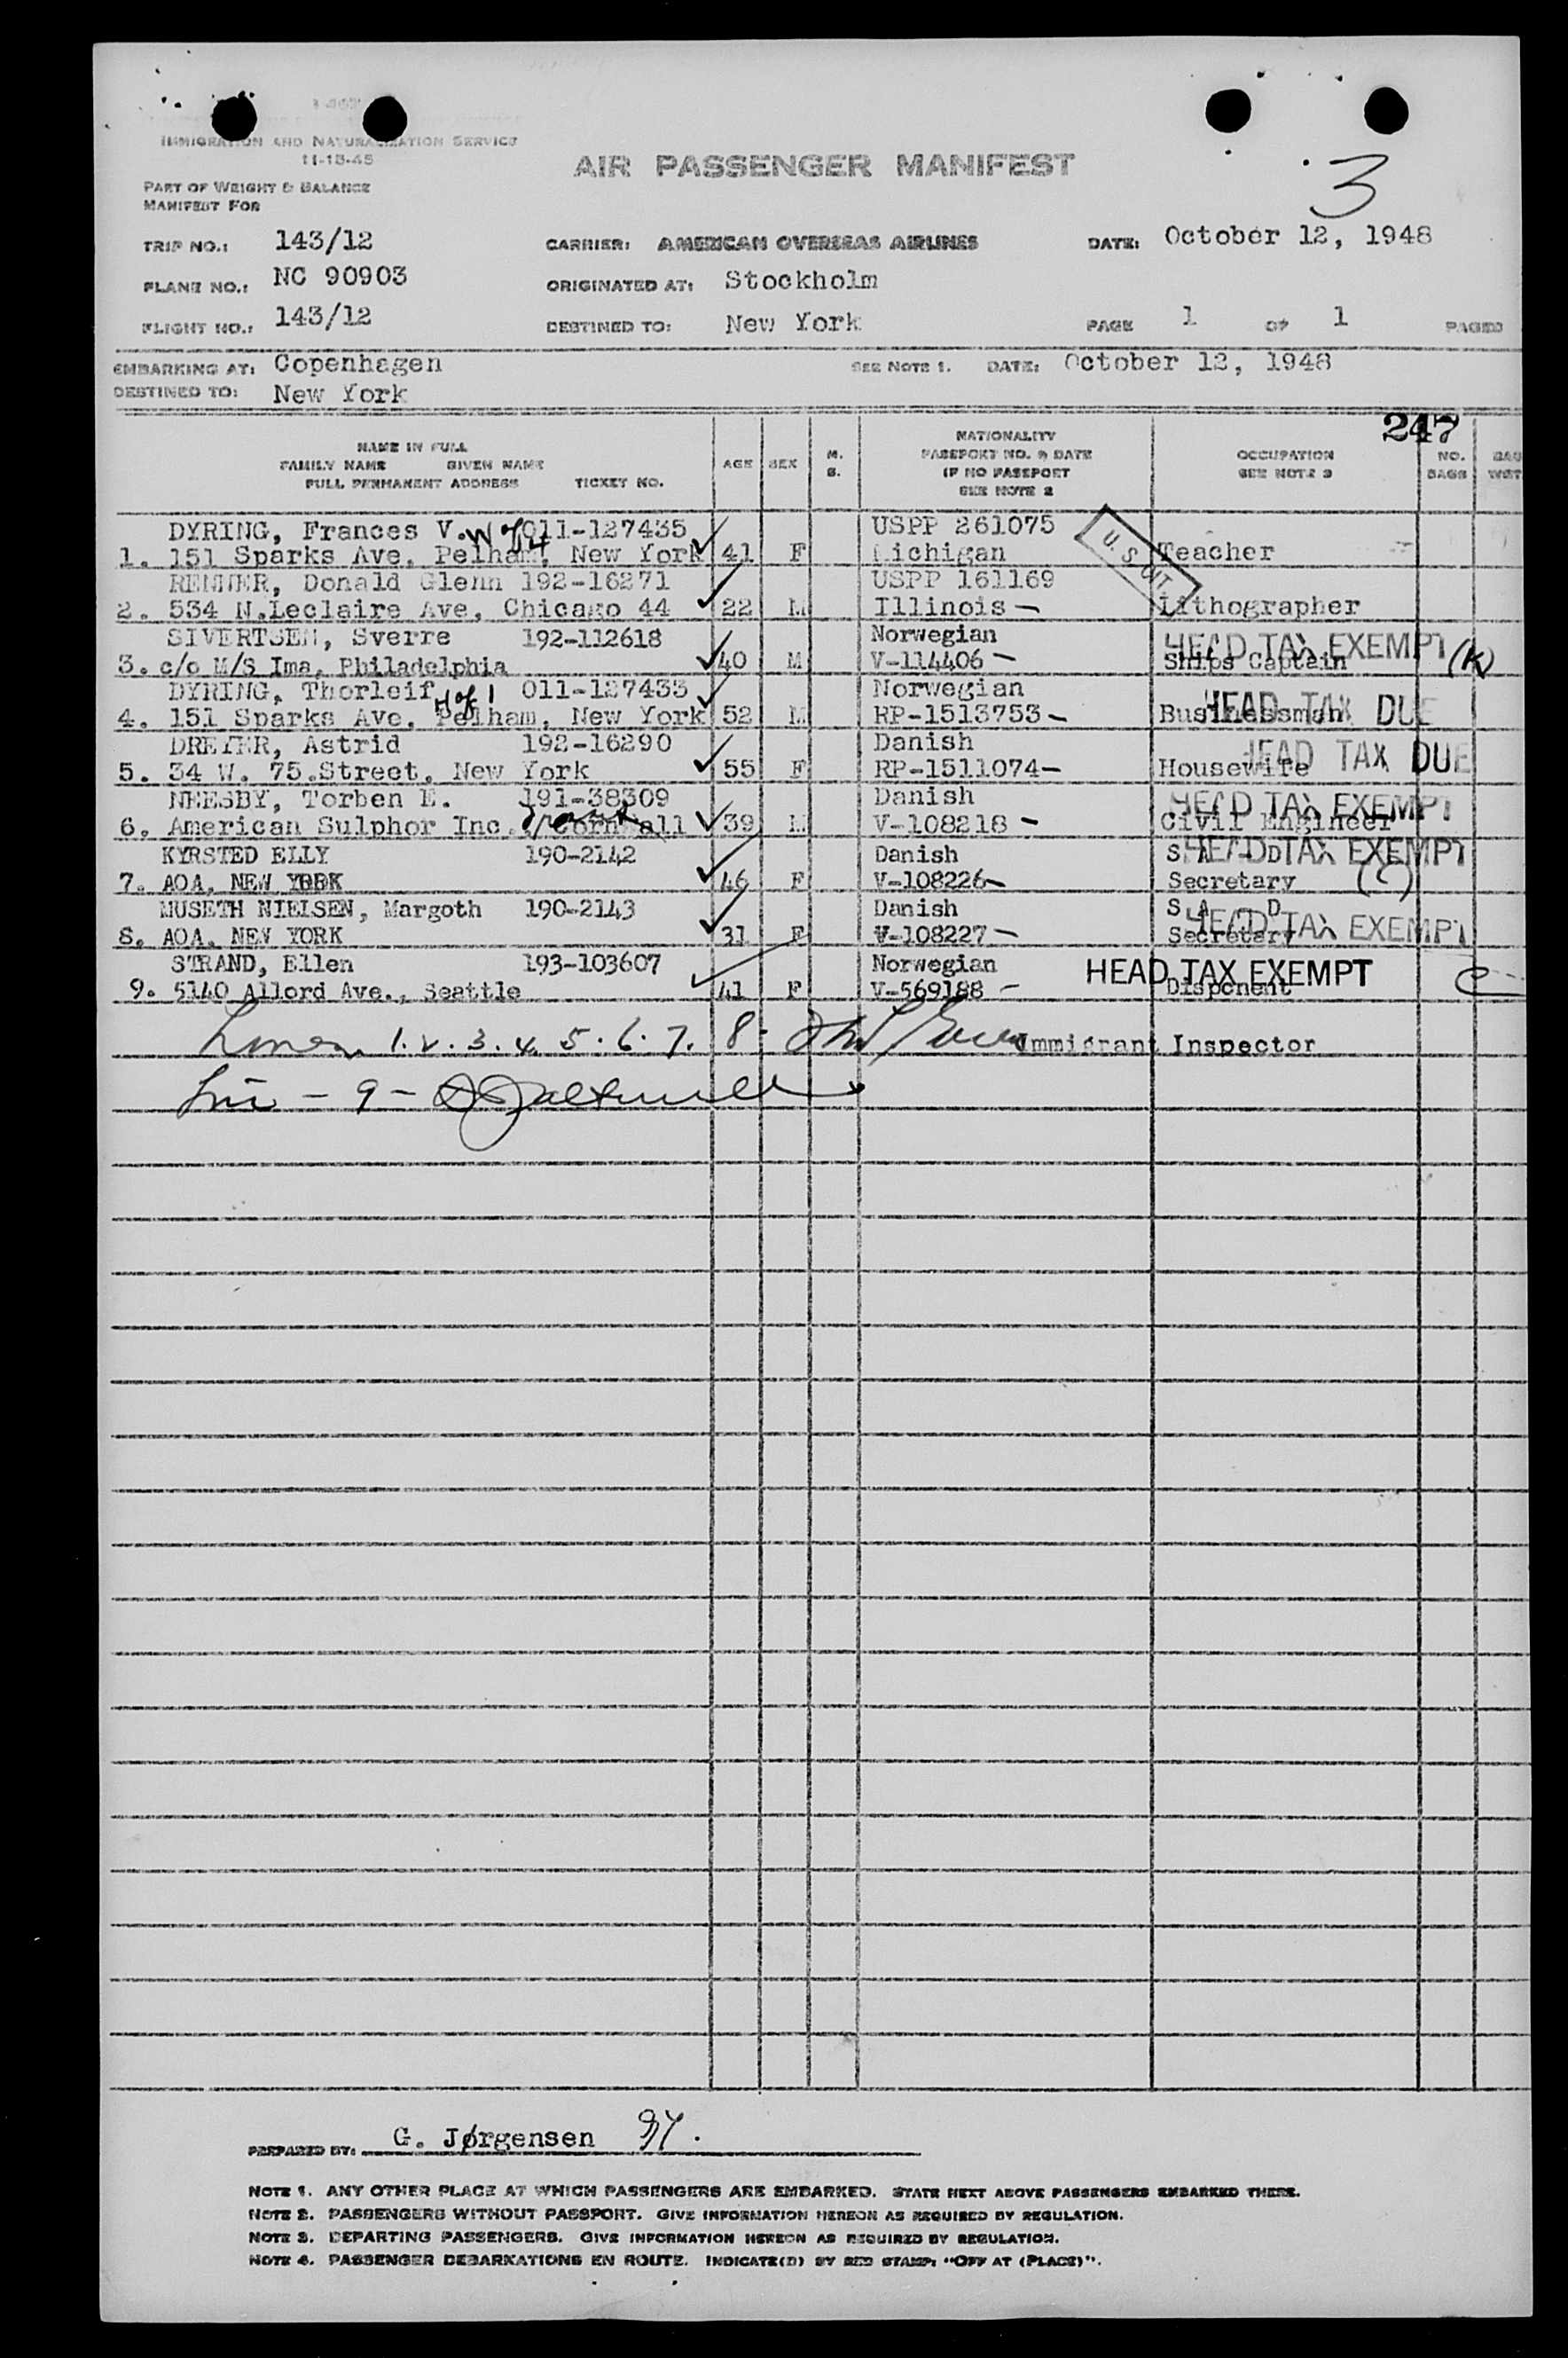 IMMIGRATION AND NATURALIZATION SERVICE
11-15-45
AIR PASSENGER MANIFEST
3
PART OF WEIGHT & BALANCE
MANIFEST FOR
TRIP NO.: 143/12 CARRIER: AMERICAN OVERSEAS AIRLINES DATE: October 12, 1948
PLANE NO.: NC 90903 ORIGINATED AT: Stockholm
FLIGHT NO.: 143/12 DESTINED TO: New York PAGE 1 OF 1 PAGES
EMBARKING AT: Copenhagen SEE NOTE 1. DATE: October 12, 1948
DESTINED TO: New York
247
NAME IN FULL
FAMILY NAME GIVEN NAME
FULL PERMANENT ADDRESS TICKET NO.
AGE SEX M. S.
NATIONALITY
PASSPORT NO. & DATE
IF NO PASSPORT
SEE NOTE 2
OCCUPATION
SEE NOTE 3
NO. BAGS
DYRING, Frances V. W of 4 011-127435 USPP 261075
1. 151 Sparks Ave, Pelham, New York 41 F Michigan U. S. CIT Teacher
RENNER, Donald Glenn 192-16271 USPP 161169
2. 534 N.Leclaire Ave, Chicago 44 22 M Illinois — Lithographer
SIVERTSEN, Sverre 192-112618 Norwegian HEAD TAX EXEMPT (K)
3. c/o M/S Ima, Philadelphia 40 M V-114406 — Ships Captain
DYRING, Thorleif H of 1 011-127433 Norwegian HEAD TAX DUE
4. 151 Sparks Ave, Pelham, New York 52 M RP-1513753 — Businessman
DREYER, Astrid 192-16290 Danish HEAD TAX DUE
5. 34 W. 75.Street, New York 55 F RP-1511074 — Housewife
NEESBY, Torben E. 191-38309 Danish HEAD TAX EXEMPT
6. American Sulphor Inc. 39 M V-108218 — Civil Engineer
KYRSTED ELLY 190-2142 Danish S A - D HEAD TAX EXEMPT
7. AOA, NEW YORK 46 F V-108226 — Secretary (C)
MUSETH NIELSEN, Margoth 190-2143 Danish S A - D HEAD TAX EXEMPT
8. AOA, NEW YORK 31 F V-108227 — Secretary
STRAND, Ellen 193-103607 Norwegian HEAD TAX EXEMPT C
9. 5140 Allord Ave., Seattle 41 F V-569188 — Disponent
Lines 1. 2. 3. 4. 5. 6. 7. 8. Immigrant Inspector
Line - 9 -
PREPARED BY: G. Jørgensen
NOTE 1. ANY OTHER PLACE AT WHICH PASSENGERS ARE EMBARKED. STATE NEXT ABOVE PASSENGERS EMBARKED THERE.
NOTE 2. PASSENGERS WITHOUT PASSPORT. GIVE INFORMATION HEREON AS REQUIRED BY REGULATION.
NOTE 3. DEPARTING PASSENGERS. GIVE INFORMATION HEREON AS REQUIRED BY REGULATION.
NOTE 4. PASSENGER DEBARKATIONS EN ROUTE. INDICATE(D) BY RED STAMP: "OFF AT (PLACE)".